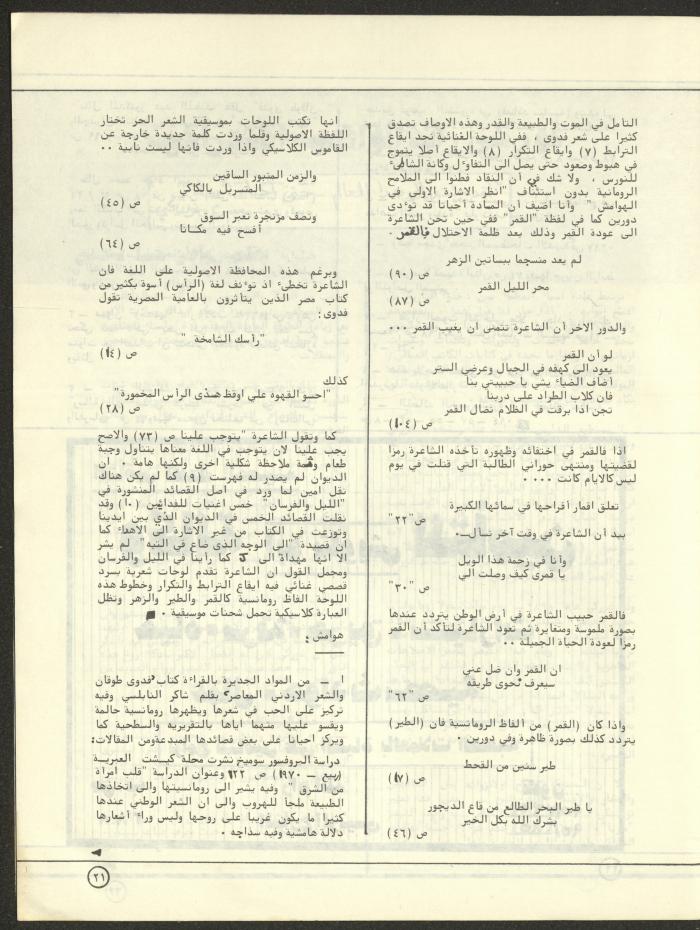 التأمل في الموت والطبيعة والقدر وهذه الاوصاف تصدق
كثيرا على شعر فدوى ، ففي اللوحة الغنائية نجد ايقاع
الترابط (٧) وايقاع التكرار (٨) والايقاع أصلا يتموج
في هبوط وصعود حتى يصل الى التفاوءل وكانة الشاطىء
للنورس ، ولا شك في أن النقاد فطنوا الى الملامح
الرومانية بدون استثناف "انظر الاشارة الاولى في
الهوامش " وأنا اضيف أن المادة أحيانا قد توءدى
دورين كما في لفظة "القمر" ففي حين تحن الشاعرة
الى عودة القمر وذلك بعد ظلمة الاحتلال فالقمر .
لم يعد منسجما ببساتين الزهر
ص (٩٠)
محر الليل القمر
ص (٨٧)
والدور الاخر أن الشاعرة تتمنى ان يغيب القمر ...
لو أن القمر
يعود الى كهفه في الجبال وعرضي الستر
أضاف الضياء يشي يا حبيبتي بنا
فان كلاب الطراد على دربنا
تجن اذا برقت في الظلام نضال القمر
ص (١٠٤)
اذا فالقمر في اختفائه وظهوره تأخذه الشاعرة رمزا
لقضيتها ومنتهى حوراني الطالبة التي قتلت في يوم
ليس كالايام كانت ....
تعلق اقمار أفراحها في سمائها الكبيرة
ص"٢٢"
بيد أن الشاعرة في وقت آخر تسأل..
وأنا في زحمة هذا الويل
يا قمرى كيف وصلت الي
ص "٣٠"
فالقمر حبيب الشاعرة في أرض الوطن يتردد عندها
بصورة ملموسة ومتغايرة ثم تعود الشاعرة لتأكد أن القمر
رمزا لعودة الحياة الجميلة ..
ان القمر وان ضل عني
سيعرف نحوى طريقه
ص "٦٢"
واذا كان (القمر) من ألفاظ الرومانسية فان (الطير)
يتردد كذلك بصورة ظاهرة وفي دورين .
طير سنين من القحط
ص (١٧)
يا طير البحر الطالع من قاع الديجور
بشرك الله بكل الخير
ص (٤٦)
انها تكتب اللوحات بموسيقية الشعر الحر تختار
اللفظة الاصولية وقلما وردت كلمة جديدة خارجة عن
القاموس الكلاسيكي واذا وردت فانها ليست نابية ..
والزمن المتبور الساقين
المتسربل بالكاكي
ص (٤٥)
وتصف مزنجرة تعبر السوق
أفسح فيه مكانا
ص (٦٤)
وبرغم هذه المحافظة الاصولية على اللغة فان
الشاعرة تخطىء اذ توءنف لغة (الرأس) أسوة بكثير من
كتاب مصر الذين يتأثرون بالعامية المصرية تقول
فدوى:
"رأسك الشامخة "
ص (١٤)
كذلك
"احسو القهوة علي اوقظ هذى الرأس المخمورة"
ص (٢٨)
كما وتقول الشاعرة "يتوجب علينا ص (٧٣) والاصح
يجب علينا لان يتوجب في اللغة معناها يتناول وجبة
طعام وثمة ملاحظة شكلية اخرى ولكنها هامة . ان
الديوان لم يصدر له فهرست (٩) كما لم يكن هناك
نقل امين لما ورد في اصل القصائد المنشورة في
"الليل والفرسان" خمس اغنيات للفدائيين (١٠) وقد
نقلت القصائد الخمس في الديوان الذي بين ايدينا
وتوزعت في الكتاب من غير الاشارة الى الاهداء كما
أن قصيدة "الى الوجه الذى ضاع في التيه" لم يشر
الا انها مهداة الى ى كما رأينا في الليل والفرسان
ومجمل القول ان الشاعرة تقدم لوحات شعرية بسرد
قصصي غنائي فيه ايقاع الترابط والتكرار وخطوط هذه
اللوحة الفاظ رومانسية كالقمر والطير والزهر وتظل
العبارة كلاسيكية تحمل شحنات موسيقية .
هوامش :
١ ــ من المواد الجديرة بالقراءة كتاب "فدوى طوقان
والشعر الاردني المعاصر" بقلم شاكر النابلسي وفيه
تركيز على الحب في شعرها ويظهرها رومانسية حالمة
ويقسو عليها متهما اياها بالتقريريه والسطحية كما
ويركز احيانا على بعض قصائدها المبدعة ومن المقالات:
دراسة البروفسور سوميخ نشرت مجلة كيشت العبرية
(ربيع ــ ١٩٧٠) ص ١٢٢ وعنوان الدراسة "قلب امرأة
من الشرق " وفيه يشير الى رومانسيتها والى اتخاذها
الطبيعة ملجأ للهروب والى ان الشعر الوطني عندها
كثيرا ما يكون غريبا على روحها وليس وراء أشعارها
دلالة هامشية وفيه سذاجه .
٢١